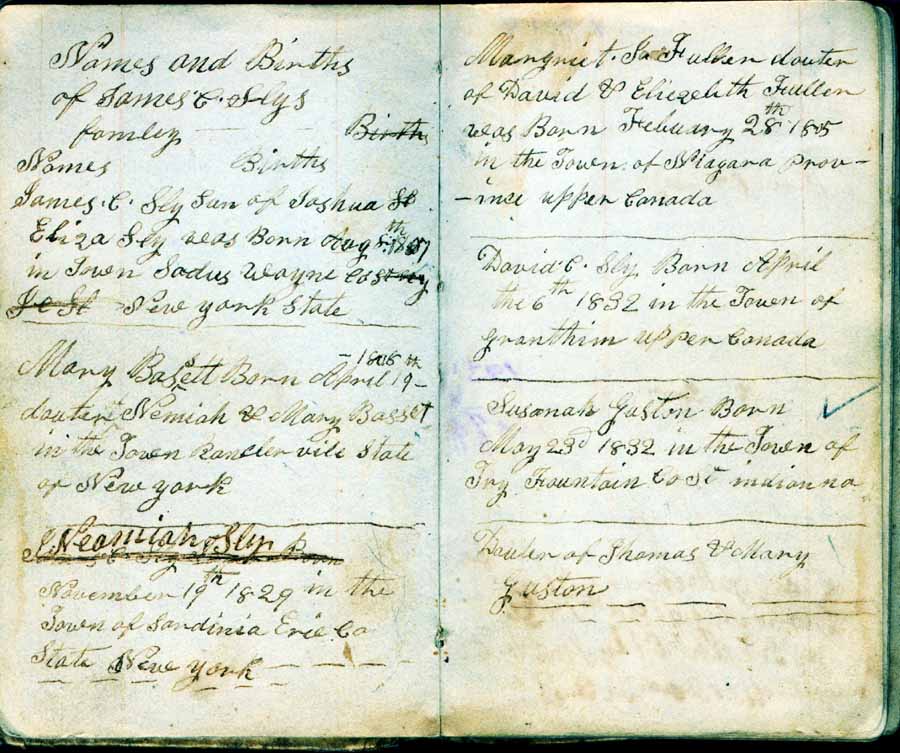 Names and Births
of James C. Slys
famley Births
Names Births
James. C. Sly Son of Joshua St
Eliza Sly was Born Aug 5th 1807
in Town Sodus Wayne Co
New york State
- 1808 th
Mary Basett Born April 19 -
douter Nemiah & Mary Basset
in the Town vile State
of New york
Neamiah Sly B
Born
November 19th 1829 in the
Town of Sardinia Erie Co
State New york
Margriet. Fuller douter
of David & Eliezebith Fuller
was Born Febuary 28th 1805
in the Town of Niagara Prov-
-ince upper Canada
David C. Sly Born April
the 6th 1832 in the Town of
granthim upper Canada
Susanah Gaston Born
May 23d 1832 in the Town of
Troy Fountain Co St indianna
Douter of Thomas & Mary
Gaston